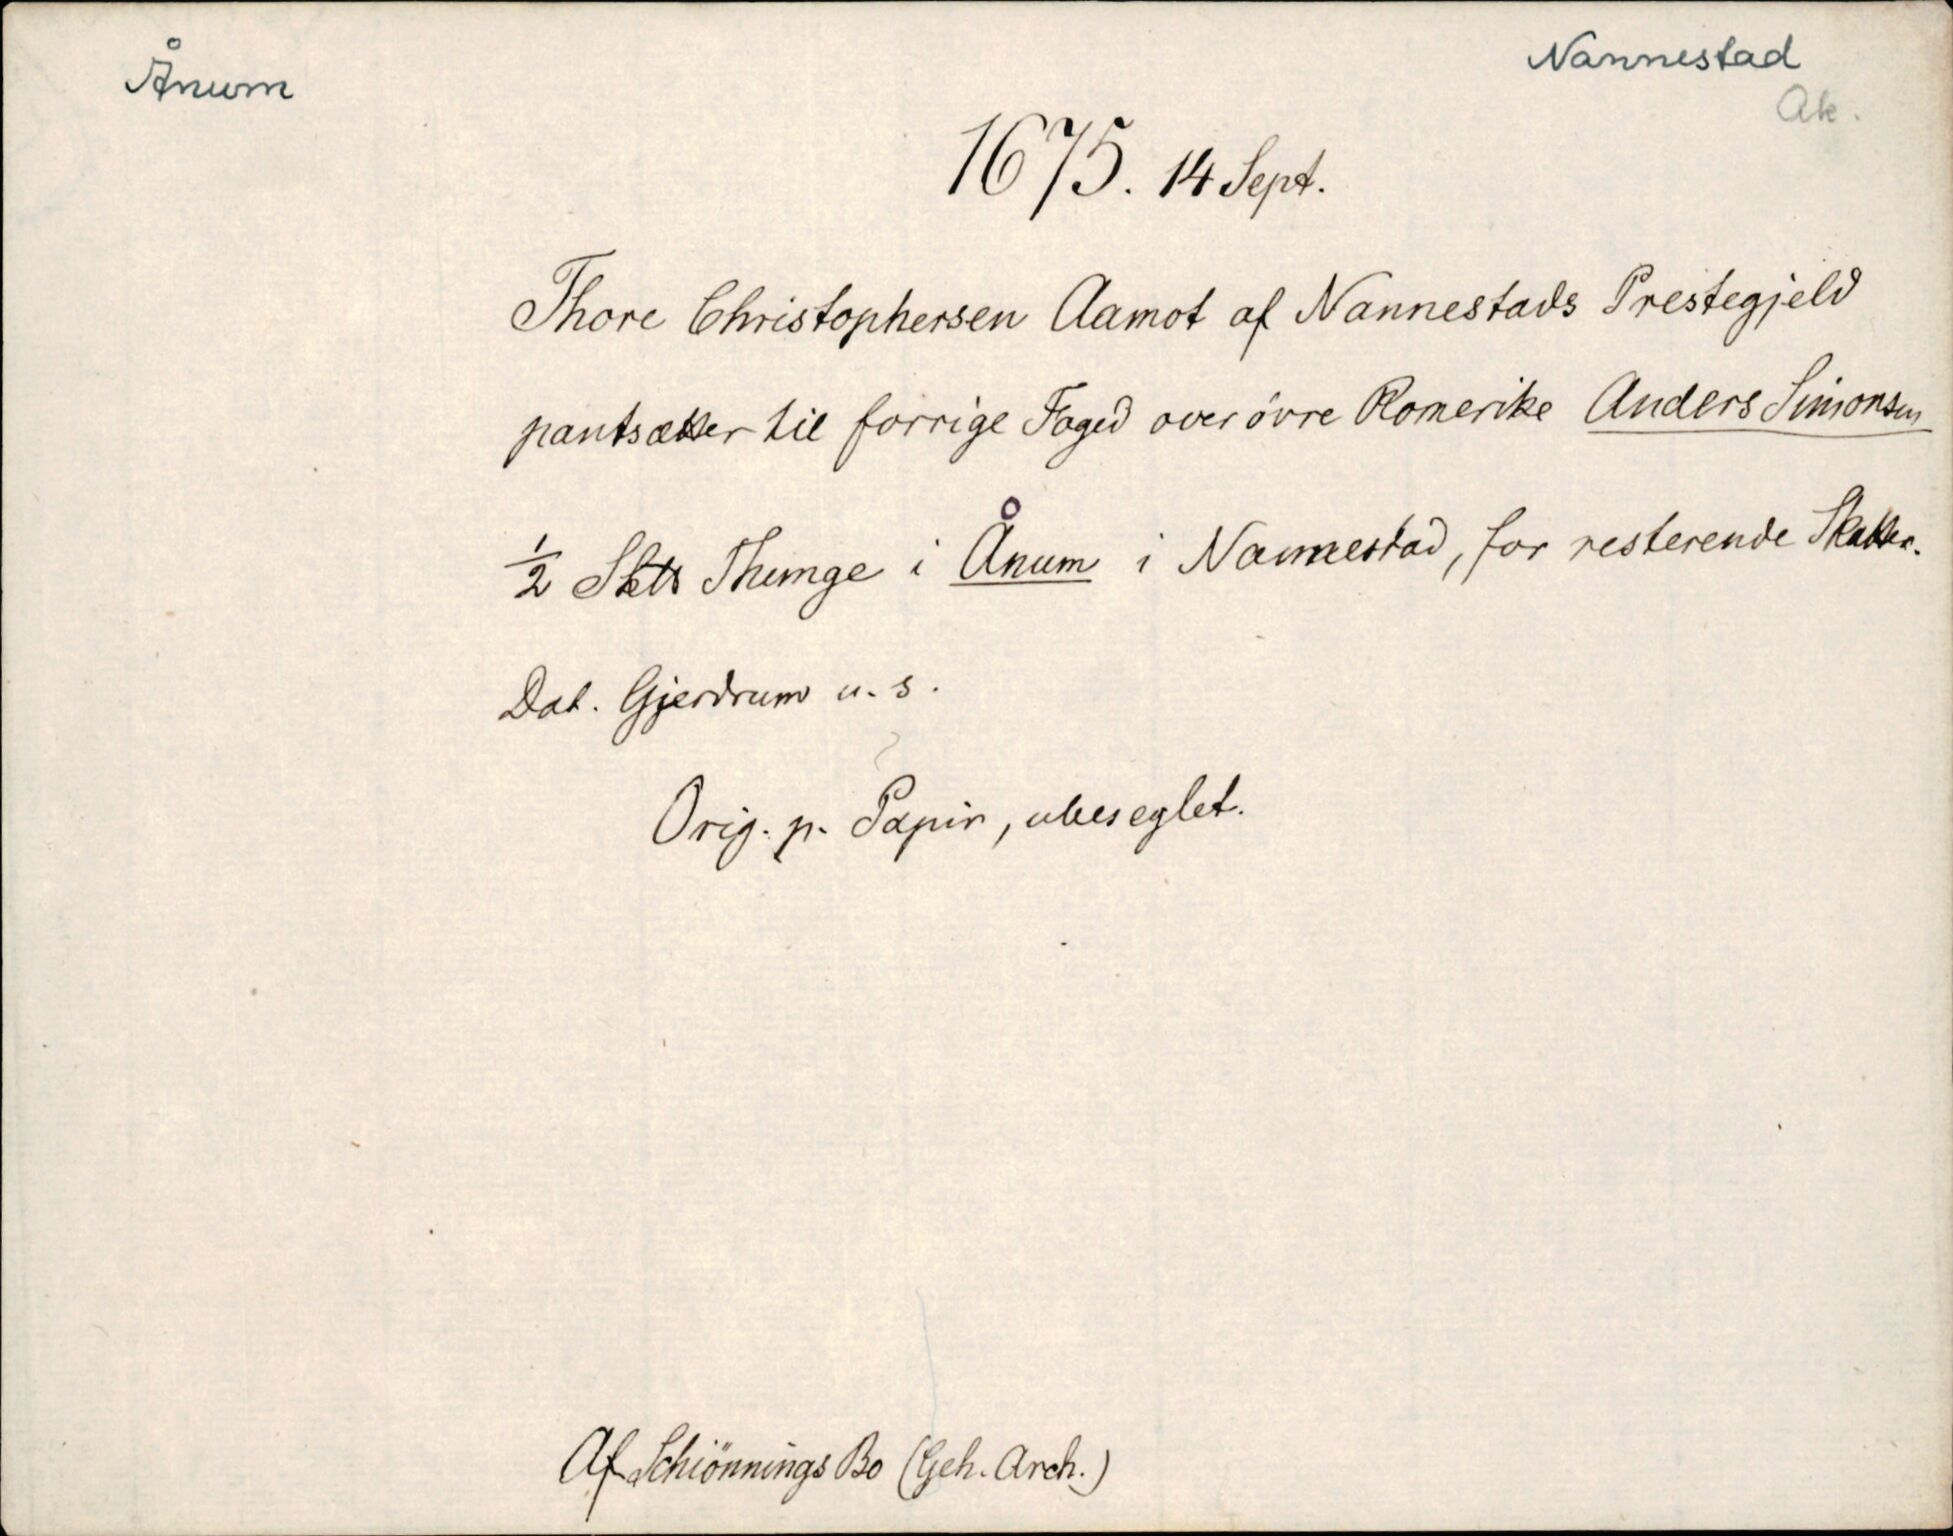 Ånum
Nannestad
Ak.
1675. 14 Sept.
Thore Christophersen Aamot af Nannestads Prestegjeld
pantsætter til forrige Foged over övre Romerike Anders Simonsen
1/2 Sktt Thunge i Ånum i Nannestad, for resterende Skatter.
Dat. Gjerdrum u. s.
Orig. p. Papir, ubeseglet.
Af Schiönnings Bo (Geh. Arch.)